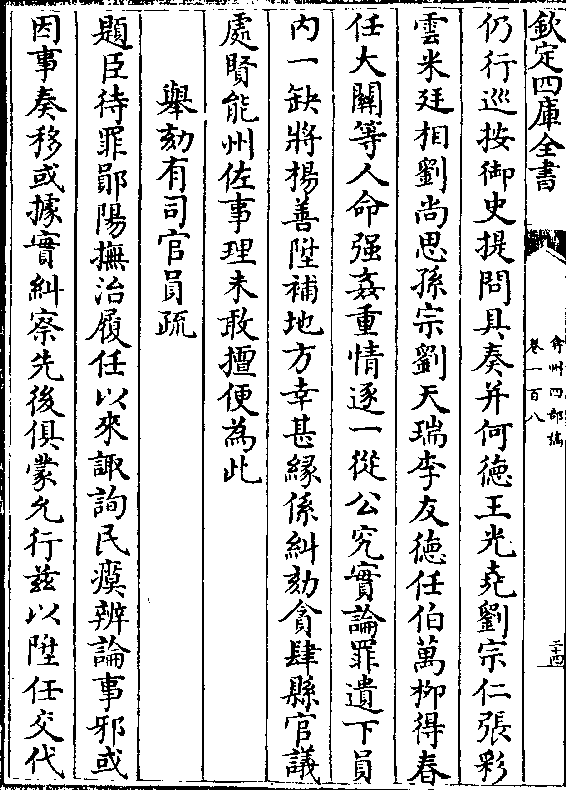 欽定四庫全書
弇州四部稿
卷一百八
二十四
仍行巡按御史提問具奏并何徳王光尭劉宗仁張彩
雲米廷相劉尚思孫宗劉天瑞李友徳任伯萬柳得春
任大闗等人命强姦重情逐一從公究實論罪遺下員
内一缺將楊善陞補地方幸甚縁係糾劾貪肆縣官議
處賢能州佐事理未敢擅便為此
舉劾有司官員疏
題臣待罪鄖陽撫治履任以來諏詢民瘼辨論事邪或
因事奏移或據實糾察先後俱蒙允行兹以陞任交代